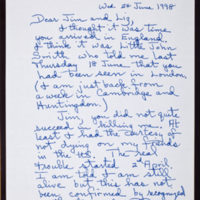 Wed 24 June 1998
Dear Jim and Liz,
I thought it was time
you arrived in England.
I think it was Little John
Smith who told me last
Thursday 18 June that you
had been seen in London.
(I am just back from
a week in Cambridge and
Huntingdon.)
Jim, you did not quite
succeed in killing me. At
least I had the courtesy of
not dying on my friends
in the US. The real
trouble started 2nd April
I am told I am still
alive but this has not
been confirmed by recognized